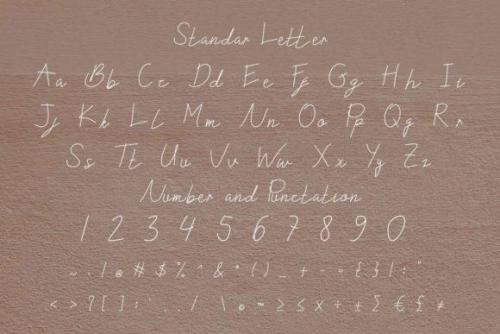 Standar Letter
Aa Bb Cc Dd Ee Ff Gg Hh Ii
Jj Kk Ll Mm Nn Oo Pp Qq Rr
Ss Tt Uu Vv Ww Xx Yy Zz
Number and Punctation
1 2 3 4 5 6 7 8 9 0
~ . ! @ # $ % ^ & * ( ) _ + - = { } | : "
< > ? [ ] ; ' , . / \ ≥ ≤ x ÷ ± ∑ € £ ≠